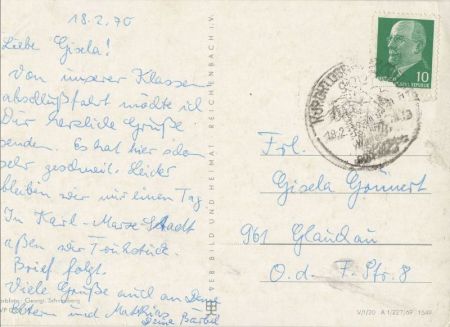 18.2.70
Liebe Gisela!
Von unserer Klassen
abschlußfahrt möchte ich
Dir herzliche Grüße
senden. Es hat hier schon
sehr geschneit. Leider
bleiben wir nur einen Tag
In Karl-Marx-Stadt
aßen wir Frühstück.
Brief folgt.
Viele Grüße auch an Deine
Eltern und Matthias
Deine Bärbel
VEB BILD UND HEIMAT REICHENBACH i. V.
10
18.2.
Frl.
Gisela Gonnert
961 Glauchau
O.d. F. Str. 8
V/1/20 A 1/227/69 1549